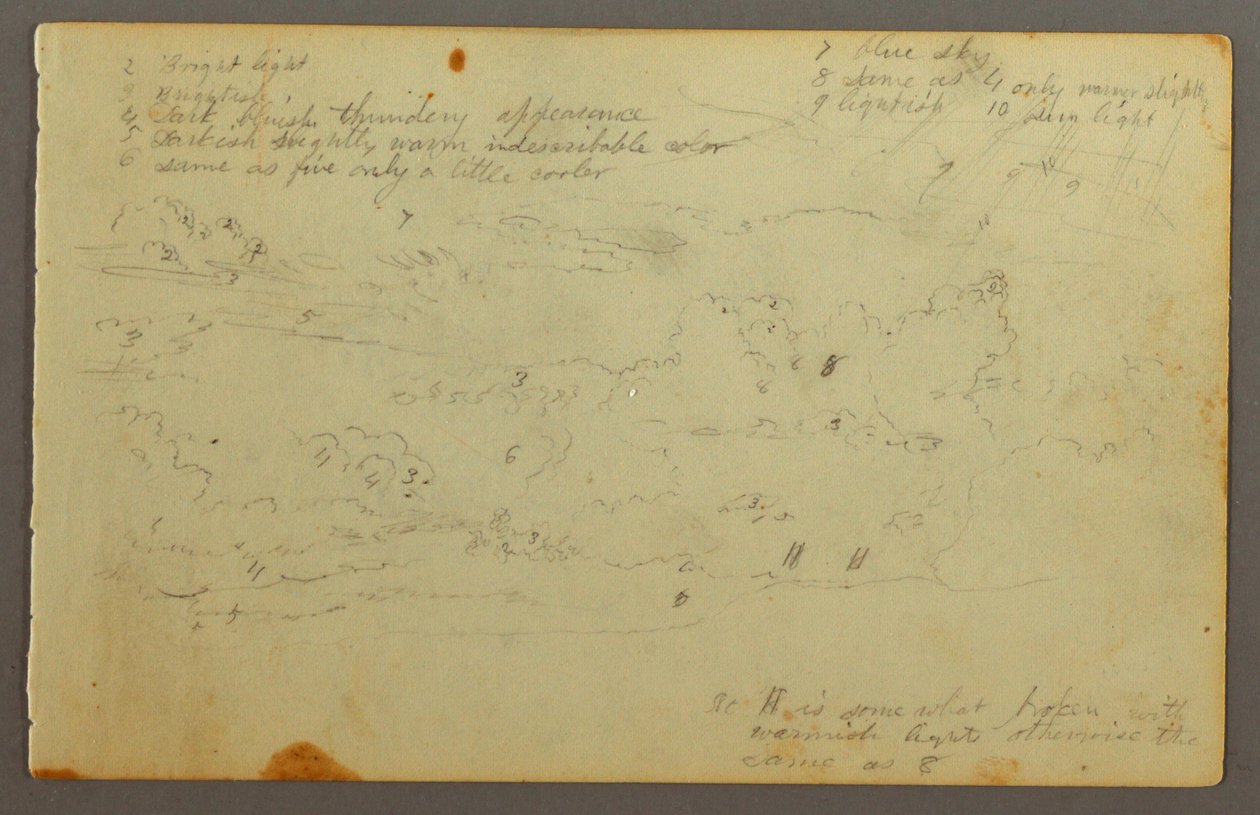 2 Bright light
3 Brightish
4 Dark bluish thundery appearance
5 Darkish slightly warm indescribable color
6 same as five only a little cooler
7 blue sky
8 same as 4 only warmer slightly
9 lightish 10 Sun light
9 9 10 9
7
2 2 2
2
3
10
5
3
2 2 2
2
8 8
8
3
3 3
4 4 3
6
3
3
2
H H
4
8
5
H is some what broken with
warmish lights otherwise the
same as 8